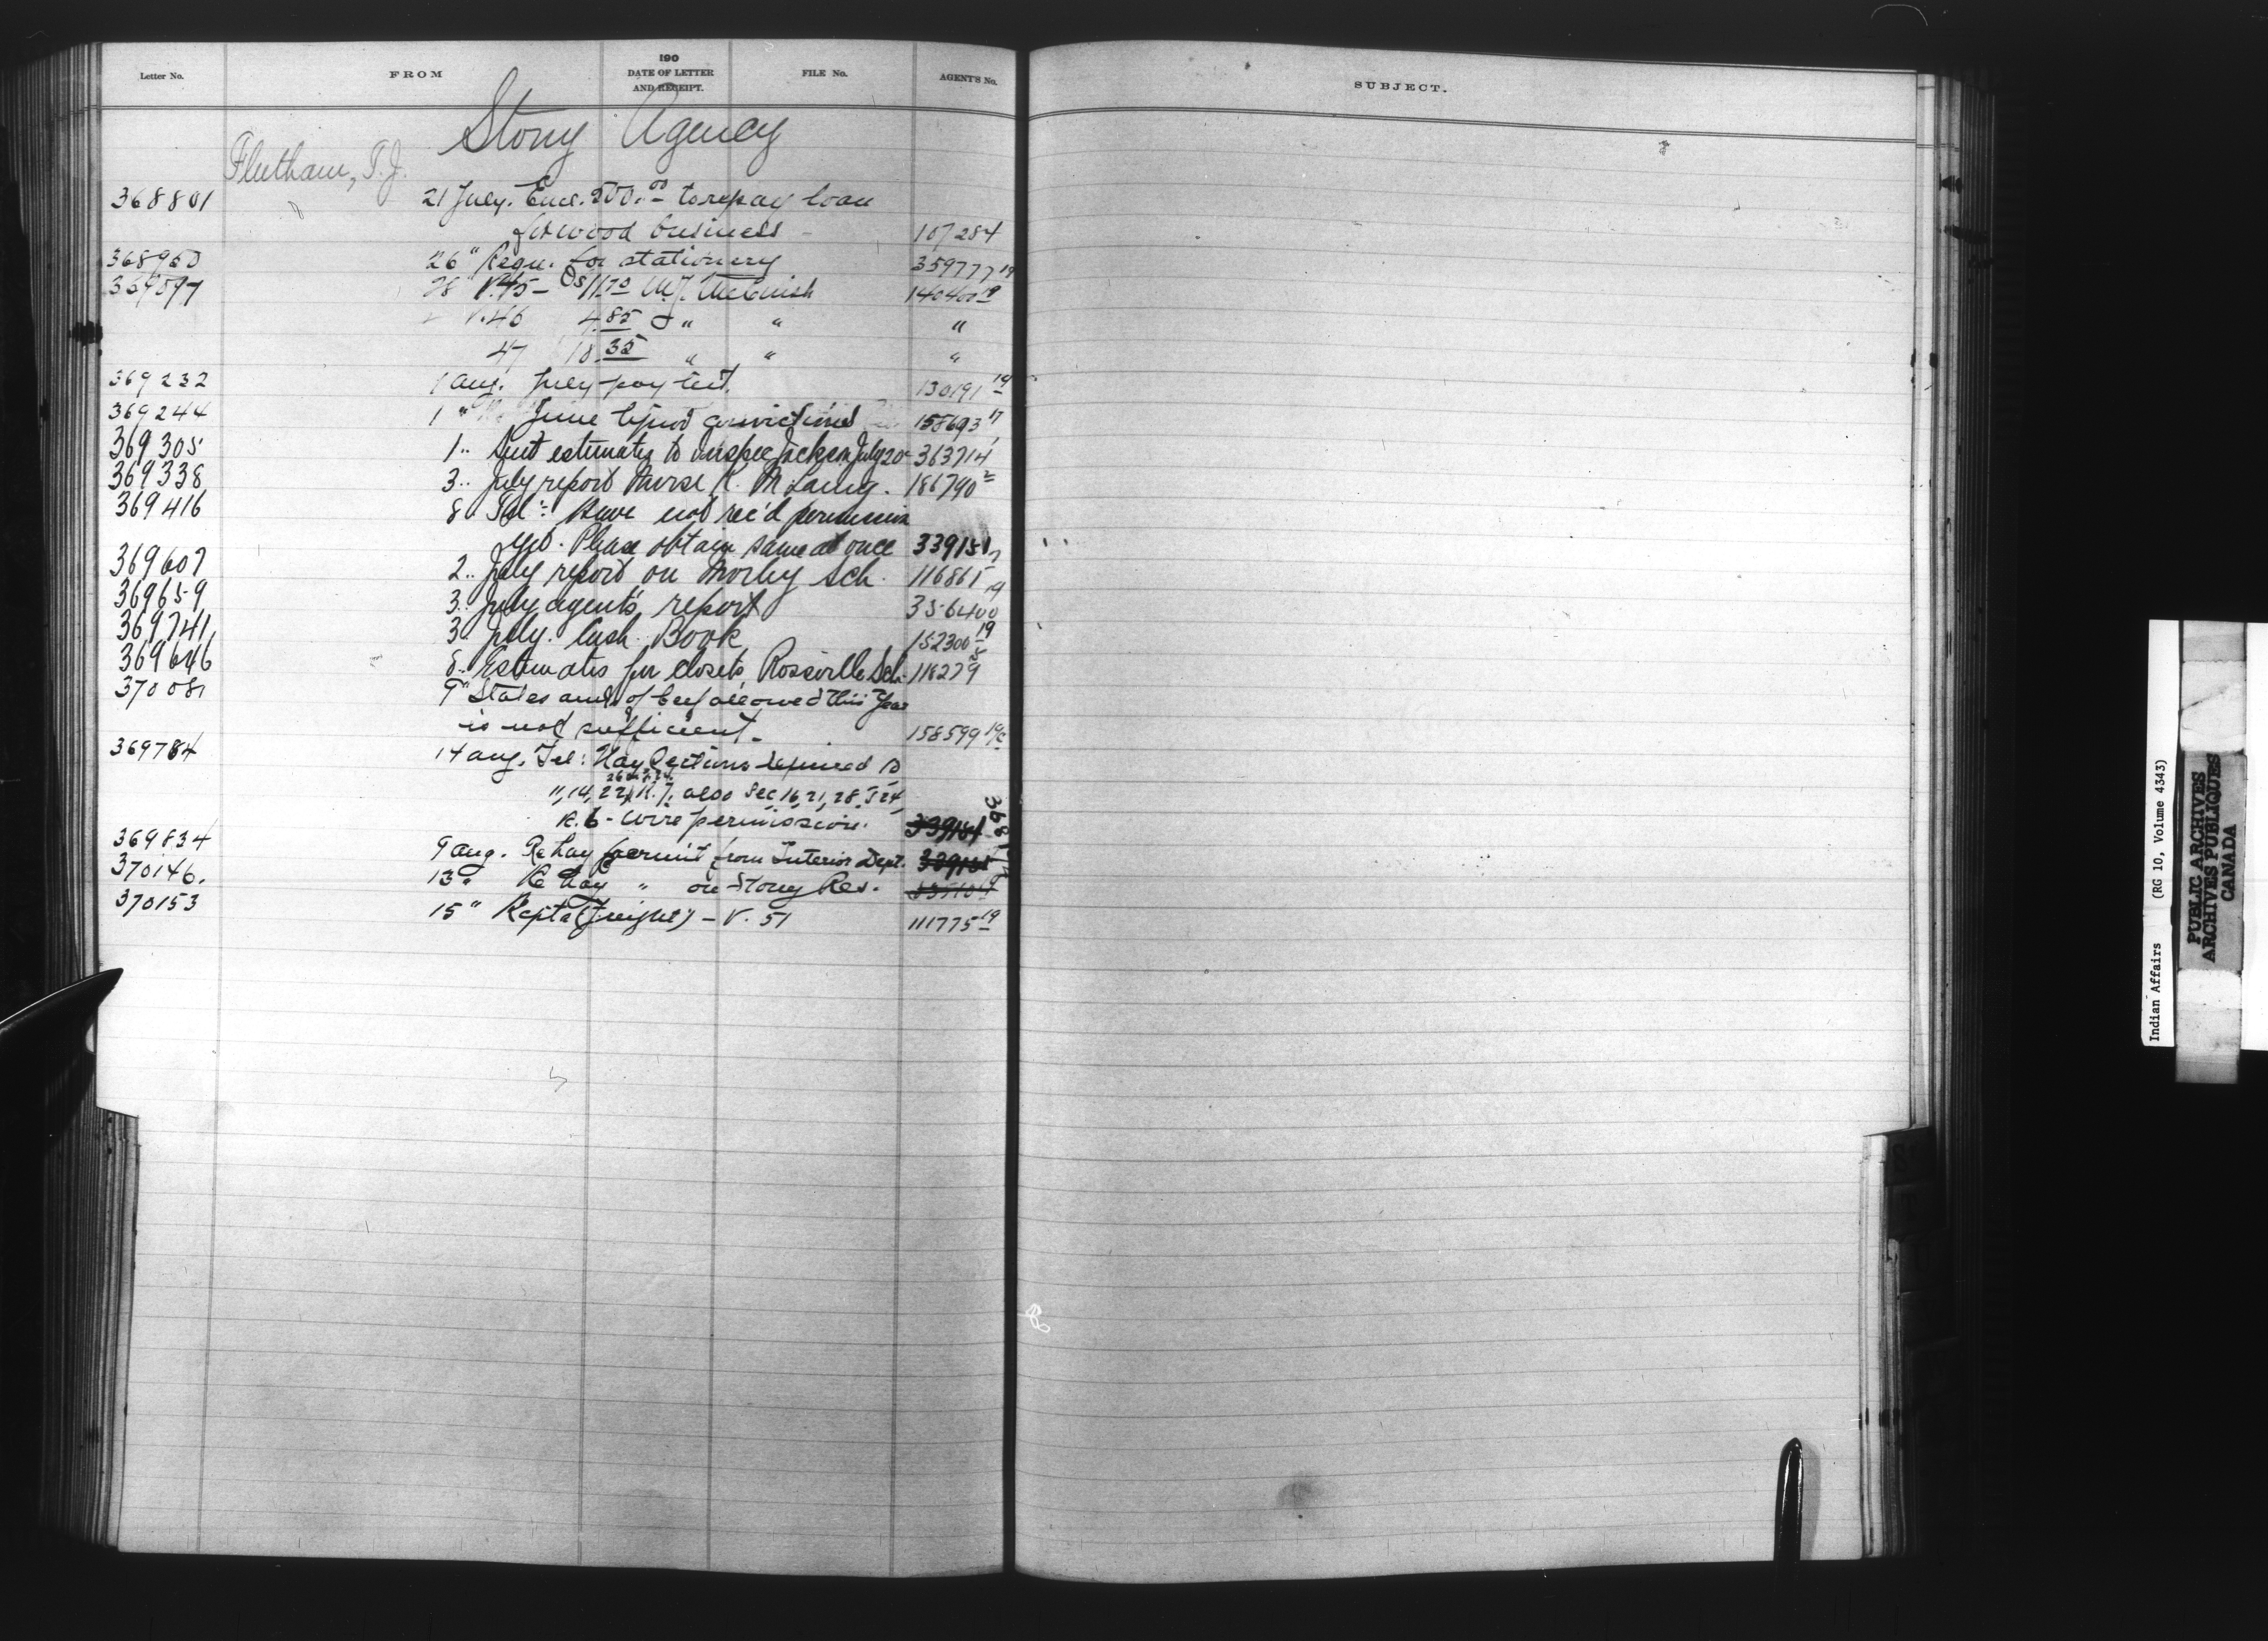 Letter No. FROM 190 DATE OF LETTER AND RECEIPT. FILE No. AGENT'S No.
SUBJECT.
Stony Agency
Fleetham, T.J.
368801 21 July. Encl. 500.00 to repay loan
for wood business - 107284
368960 26 " Requ. for stationery 359777 19
369097 28 " V. 45 - 11.70 140400 19
" V. 46 4.85 " " "
47 18.35 " " "
369232 1 Aug. July pay list. 130191 19
369244 1 " June liquor convictions 158693 17
369305 1 .. Sent estimates to Inspec Jackson July 20 363714
369338 3 .. July report Nurse 186790 2
369416 8 .. Tel: Have not rec'd permission
yet. Please obtain same at once 339151
369607 2 .. July report on Morley Sch. 116865
369659 3 .. July agent's report 356400
369741 3 July. Cash Book 152300 19
369646 8 .. Estimates for closets, Rossville Sch. 116279
370081 9 " States amt of beef allowed this year
is not sufficient. 158599
369784 14 Aug. Tel: Hay Sections required
11, 14, 22, R. 7, also Sec 16, 21, 28, T 24,
R. 6 - Wire permission. 339151
369834 9 Aug. Re hay permit from Interior Dept.
370146. 13 " Re Hay " on Stony Res.
370153 15 " Rcpts (Freight) - V. 51 111775 19
Indian Affairs (RG 10, Volume 4343)
PUBLIC ARCHIVES
ARCHIVES PUBLIQUES
CANADA